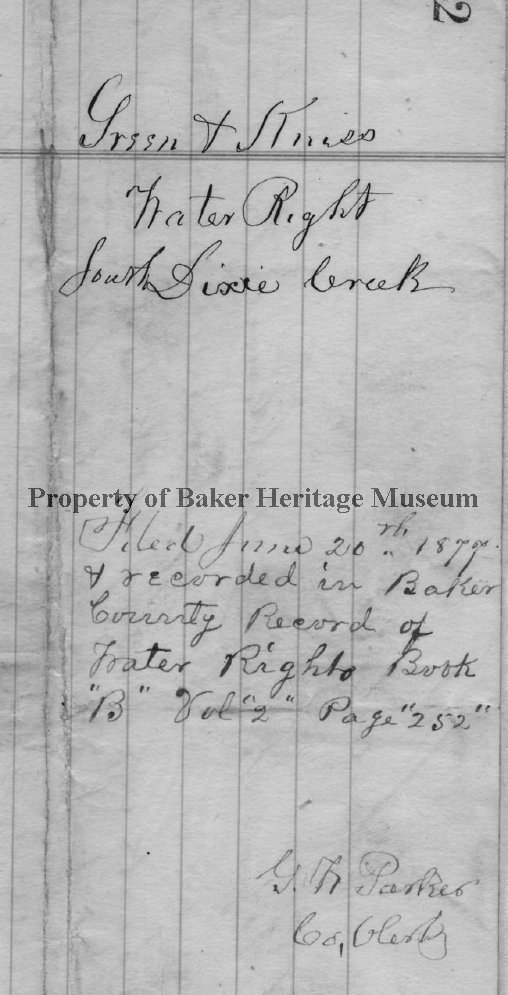 2
Green & Kniss
Water Right
South Dixie Creek
Property of Baker Heritage Museum
Filed June 20th 1877.
& recorded in Baker
County Record of
Water Rights Book
"B" Vol "2" Page "252"
G. W Parker
Co, Clerk